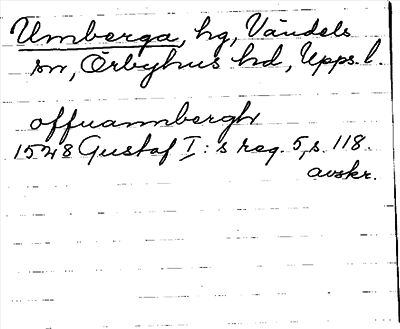 Umberga, hg, Vändels
sn, Örbyhus hd, Upps. l.
offuannbergh
1528 Gustaf I: s reg. 5, s. 118.
avskr.